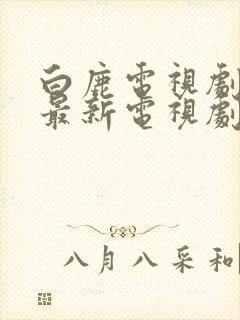 白鹿電視劇
最新電視劇
八月八采和